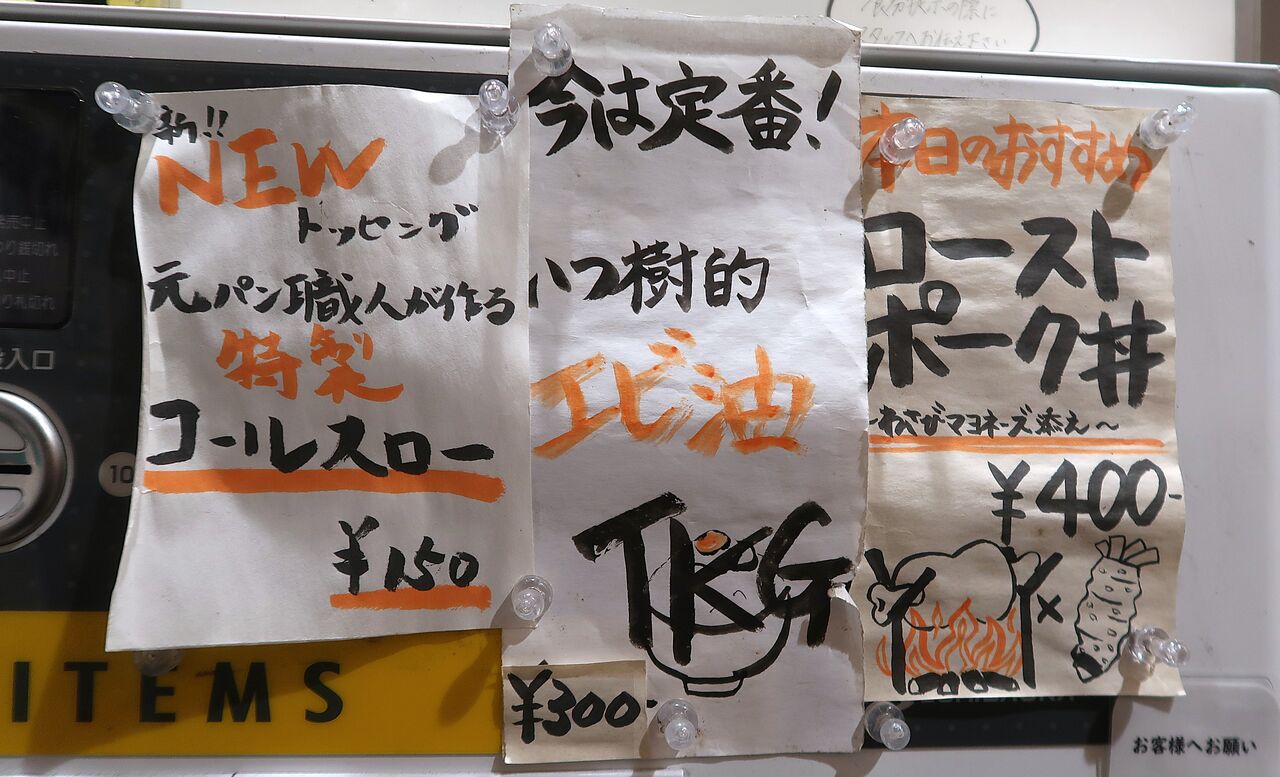 新!!
NEW
トッピング
元パン職人が作る
特製
コールスロー
¥150
今は定番!
いつ樹的
エビ油
TKG
¥300-
本日のおすすめ
ロースト
ポーク丼
〜わさびマヨネーズ添え〜
¥400-
×
スタッフへお伝え下さい
中止
り札切れ
入口
10
ITEMS
お客様へお願い